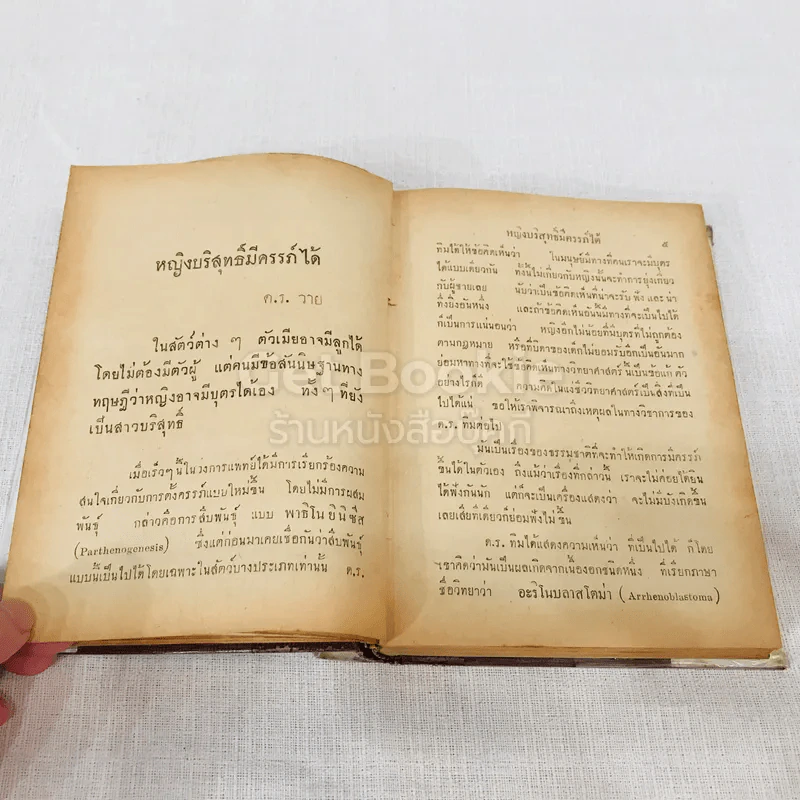 หญิงบริสุทธิ์มีครรภ์ได้
ค.ร. วาย
ในสัตว์ต่าง ๆ ตัวเมียอาจมีลูกได้
โดยไม่ต้องมีตัวผู้ แต่คนมีข้อสันนิษฐานทาง
ทฤษฎีว่าหญิงอาจมีบุตรได้เอง ทั้ง ๆ ที่ยัง
เป็นสาวบริสุทธิ์
เมื่อเร็วๆนี้ในวงการแพทย์ได้มีการเรียกร้องความ
สนใจเกี่ยวกับการตั้งครรภ์แบบใหม่ขึ้น โดยไม่มีการผสม
พันธุ์ กล่าวคือการสืบพันธุ์ แบบ พาธิโนยินิซีส
(Parthenogenesis) ซึ่งแต่ก่อนมาเคยเชื่อกันว่าสืบพันธุ์
แบบนี้เป็นไปได้โดยเฉพาะในสัตว์บางประเภทเท่านั้น ด.ร.
หญิงบริสุทธิ์มีครรภ์ได้ ๕
ทิมได้ให้ข้อคิดเห็นว่า ในมนุษย์มีทางที่คนเราจะมีบุตร
ได้แบบเดียวกัน ทั้งนี้ไม่เกี่ยวกับหญิงนั้นจะทำการยุ่งเกี่ยว
กับผู้ชายเลย นับว่าเป็นข้อคิดเห็นที่น่าจะรับ ฟัง และ น่า
ทึ่งยิ่งอันหนึ่ง และถ้าข้อคิดเห็นอันนี้มีทางที่จะเป็นไปได้
ก็เป็นการแน่นอนว่า หญิงอีกไม่น้อยที่มีบุตรที่ไม่ถูกต้อง
ตามกฎหมาย หรือที่บิดาของเด็กไม่ยอมรับอีกเป็นอันมาก
ย่อมหาทางที่จะใช้ข้อคิดเห็นทางวิทยาศาสตร์ นี้เป็นข้อแก้ ตัว
อย่างไรก็ดี ความคิดในแง่ชีววิทยาศาสตร์เป็นสิ่งที่เป็น
ไปได้แน่ ขอให้เราพิจารณาถึงเหตุผลในทางวิชาการของ
ด.ร. ทิมต่อไป
มันเป็นเรื่องของธรรมชาติที่จะทำให้เกิดการมีครรภ์
ขึ้นได้ในตัวเอง ถึงแม้ว่าเรื่องที่กล่าวนี้ เราจะไม่ค่อยได้ยิน
ได้ฟังกันนัก แต่ก็จะเป็นเครื่องแสดงว่า จะไม่มีบังเกิดขึ้น
เลยเสียทีเดียวก็ย่อมฟังไม่ ขึ้น
ด.ร. ทิมได้แสดงความเห็นว่า ที่เป็นไปได้ ก็โดย
เขาคิดว่ามันเป็นผลเกิดจากเนื้องอกชนิดหนึ่ง ที่เรียกภาษา
ชื่อวิทยาว่า อะริโนบลาสโตม่า (Arrhenoblastoma)
Get Book
ร้านหนังสือปุ๊บุ๊ก